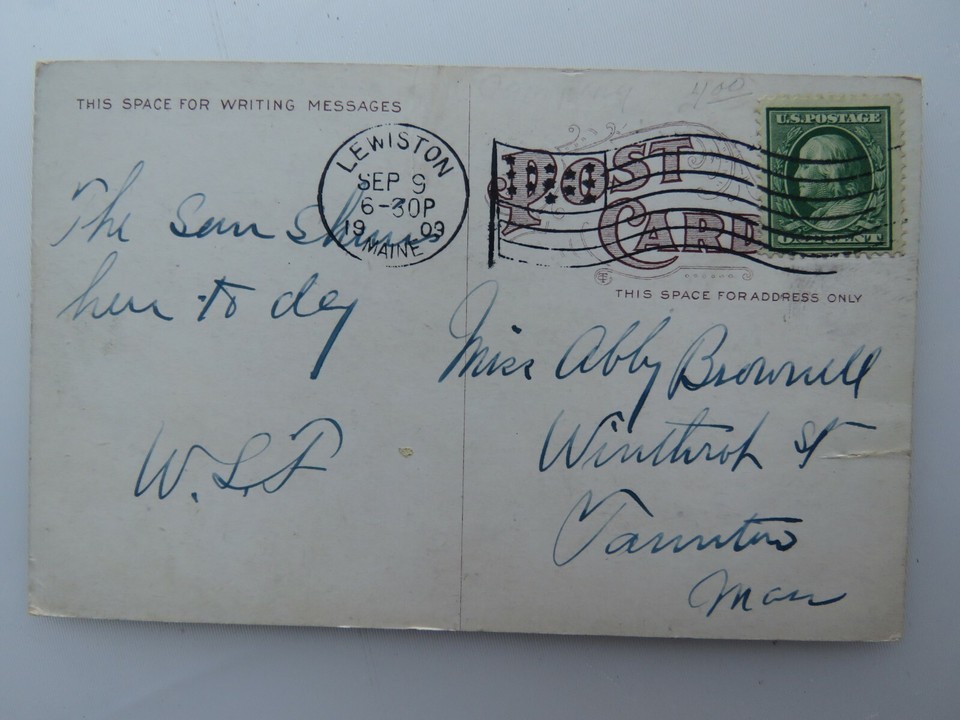 THIS SPACE FOR WRITING MESSAGES
The sun shines
here to day
W.L.F
LEWISTON
SEP 9
6-30P
1909
MAINE
4.00
U.S. POSTAGE
ONE CENT
POST
CARD
THIS SPACE FOR ADDRESS ONLY
Miss Abby Brownell
Winthrop St
Taunton
Mass